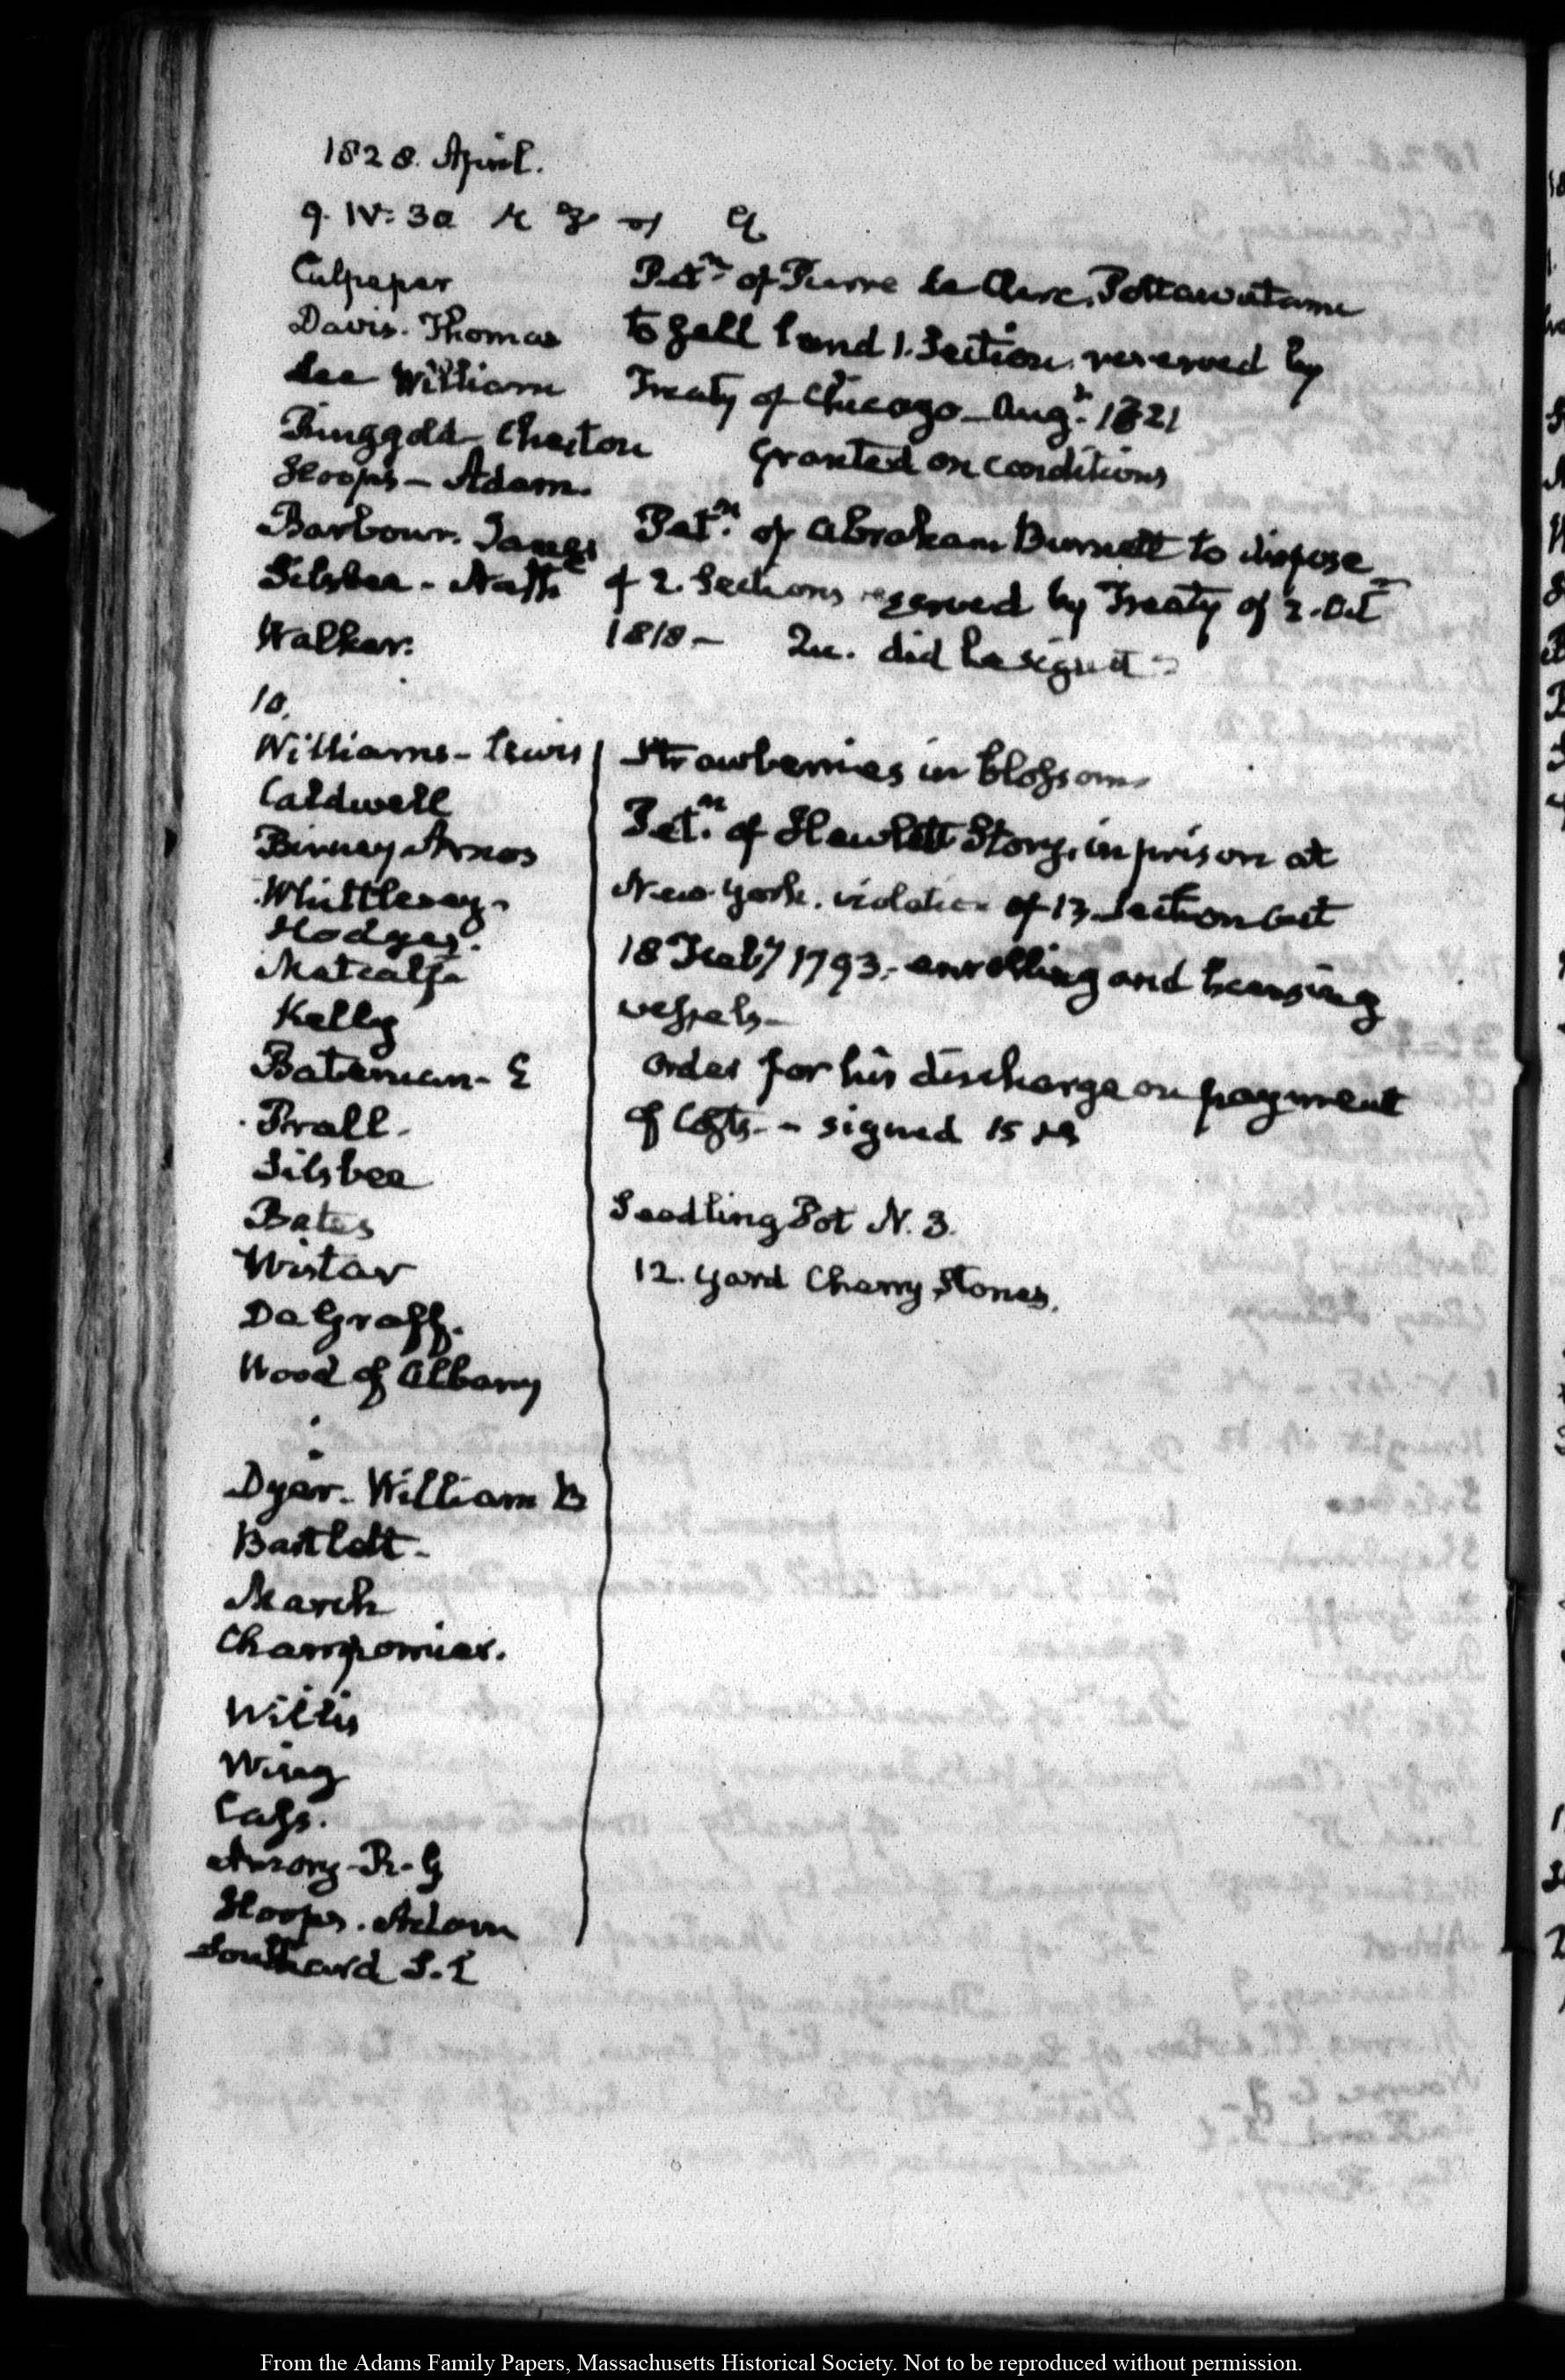 1828. April.
9. IV: 30
Culpeper
Davis. Thomas
Lee William
Ringgold Cheston
Hoops - Adam.
Barbour. James
Silsbee - Nath
Walker.
Petn. of Pierre Le Clerc, Pottawatamie
to sell land 1. Section. reserved by
Treaty of Chicago - Augt. 1821
Granted on conditions
Petn. of Abraham Burnett to dispose
of 2. Sections reserved by Treaty of 2. Oct
1818 - Qu. did he sign it
10.
Williams - Lewis
Caldwell
Binney Amos
Whittlesey.
Hodges.
Metcalfe
Kelly
Bateman - E
Prall.
Silsbee
Bates
Wistar
DeGraff.
Wood of Albany
Dyer. William B
Bartlett -
March
Champomier.
Willis
Wing
Cass.
Amory - R - G
Hoops. Adam
Southard S. L
Strawberries in blossom
Petn. of Hewlett Story, in prison at
New York. violation of 13. Section Act
18 Feby 1793. enrolling and licensing
vessels -
order for his discharge on payment
of Costs - signed 15
Seedling Pot N. 3.
12. yard Cherry Stones.
From the Adams Family Papers, Massachusetts Historical Society. Not to be reproduced without permission.